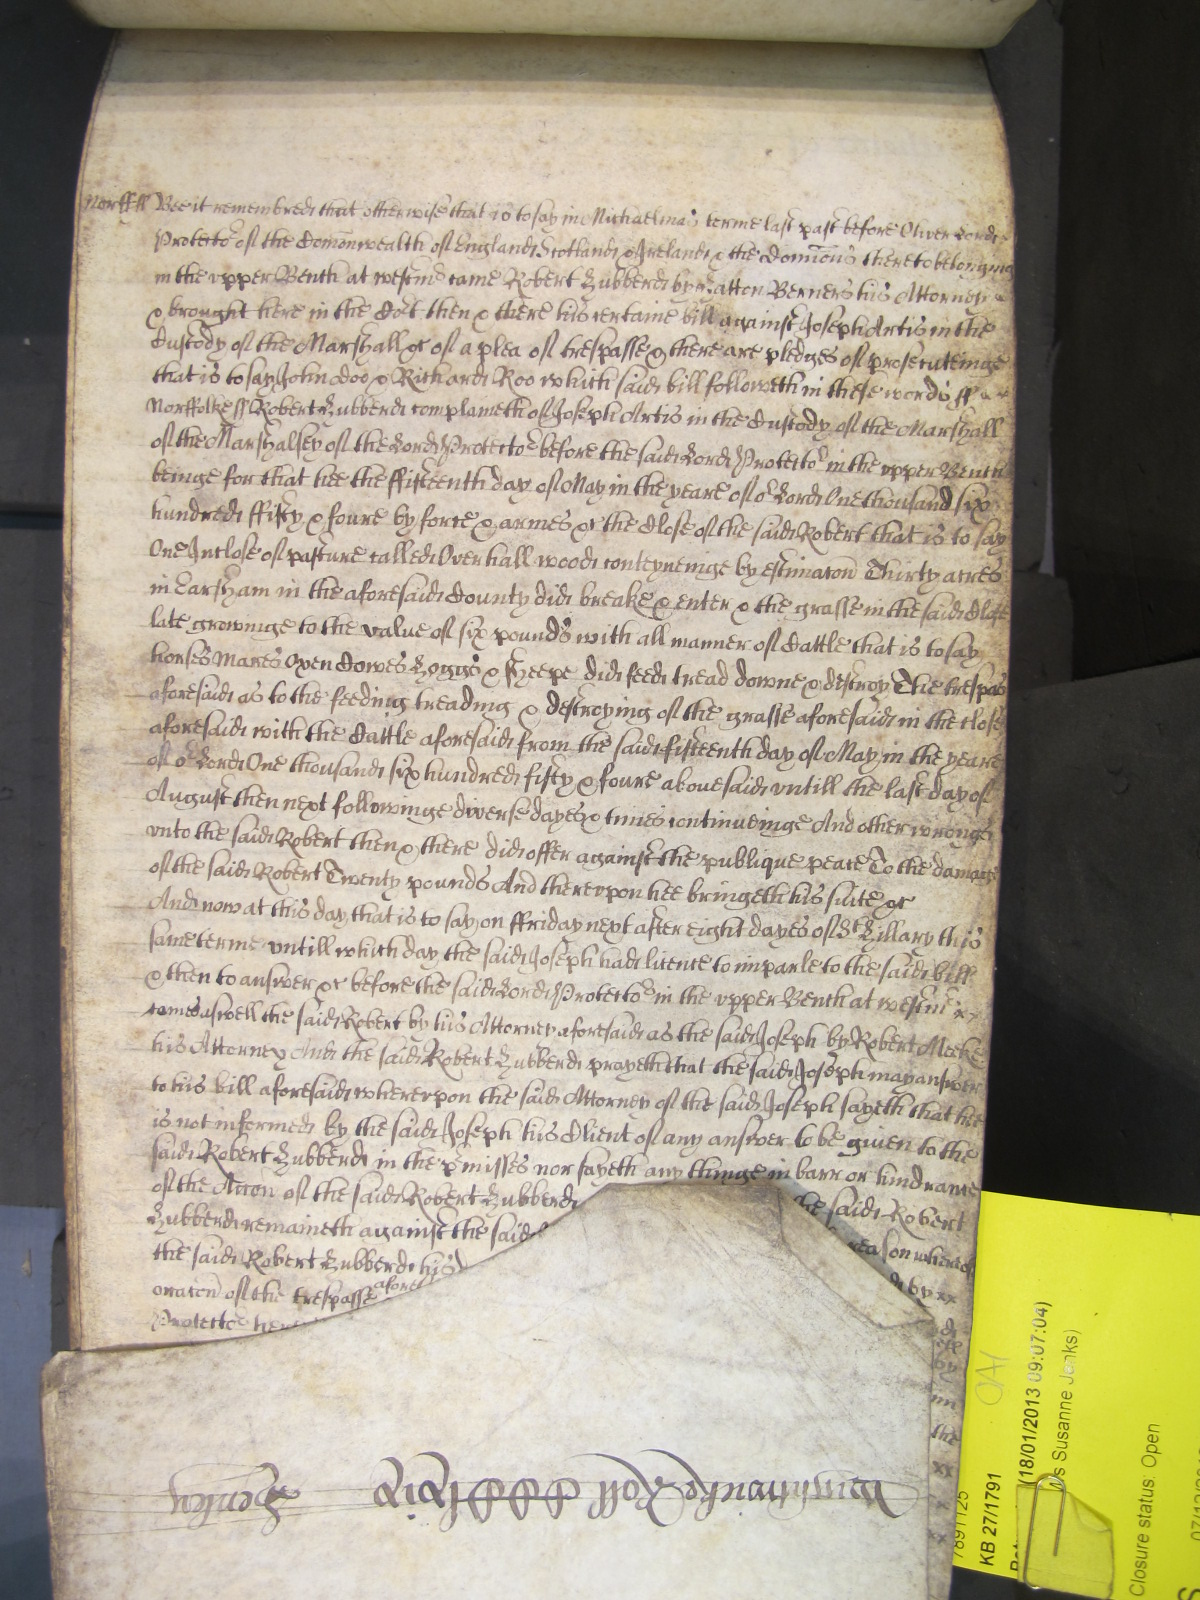 Norff ss Bee it remembred that otherwise that is to say in Michaelmas terme last past before Oliver Lord
Protector of the Comonwealth of England Scotland & Ireland & the Dominions thereto belonging
in the vpper Bench at westm came Robert Hubberd by Hatton Berners his Attorney
& brought here in the Cort then & there his certaine bill against Joseph Artis in the
Custody of the Marshall &c of a plea of trespasse & there are pledges of prosecuteinge
that is to say John Doo & Richard Roo which said bill followeth in these words ss
Norffolke ss Robert Hubberd complaineth of Joseph Artis in the Custody of the Marshall
of the Marshalsey of the Lord Protector before the said Lord Protector in the vpper Bench
beinge for that hee the ffifteenth day of May in the yeare of or Lord One thousand six
hundred ffifty & foure by force & armes &c the Close of the said Robert that is to say
One Inclose of pasture called Overhall wood conteyneinge by estimacon Thirty acres
in Earsham in the aforesaid County did breake & enter & the grasse in the said Close
late growinge to the value of six pounds with all manner of Cattle that is to say
horses Mares Oxen Cowes Hoggs & sheepe did feed tread downe & destroy The trespas
aforesaid as to the feeding treading & destroying of the grasse aforesaid in the close
aforesaid with the Cattle aforesaid from the said fifteenth day of May in the yeare
of or Lord One thousand six hundred fifty & foure abovesaid vntill the last day of
August then next followinge diverse dayes & times continueinge And other wronges
vnto the said Robert then & there did offer against the publique peace To the damage
of the said Robert Twenty pounds And therevpon hee bringeth his suite &c
And now at this day that is to say on ffriday next after eight dayes of St Hillary this
same terme vntill which day the said Joseph had licence to imparle to the said bill
& then to answer &c before the said Lord Protector in the vpper Bench at westm xx
comes aswell the said Robert by his Attorney aforesaid as the said Joseph by Robert Meeke
his Attorney And the said Robert Hubberd prayeth that the said Joseph may answer
to his bill aforesaid wherevpon the said Attorney of the said Joseph sayeth that hee
is not informed by the said Joseph his Client of any answer to be given to the
said Robert Hubberd in the p'misses nor sayeth any thinge in barr or hindrance
of the Accon of the said Robert Hubberd the said Robert
Hubberd remaineth against the said reason whereof
the said Robert Hubberd his by xx
oracon of the trespasse afores
Protector here
the
xx
x
xx
Roll
7891125
KB 27/1791
(18/01/2013 09:07:04)
s Susanne Jenks)
Closure status: Open